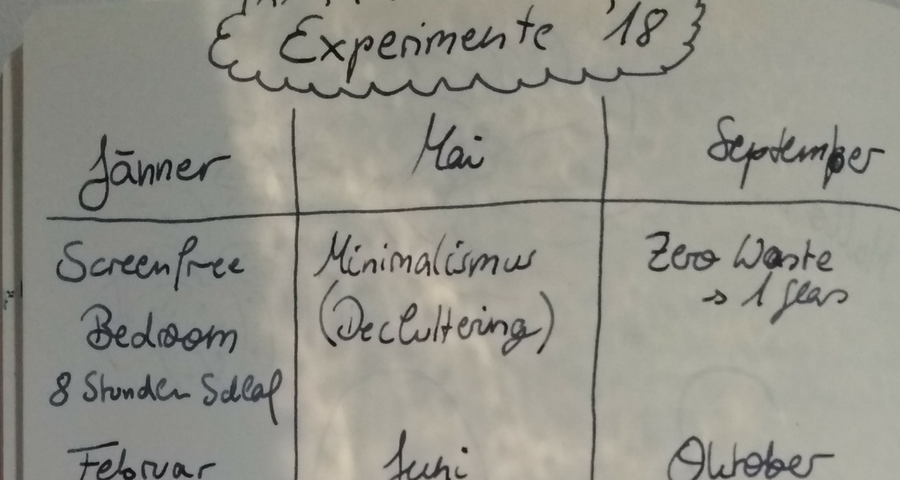 Experimente '18
Jänner
Mai
September
Screenfree
Bedroom
8 Stunden Schlaf
Minimalismus
(Decluttering)
Zero Waste
→ 1 Glas
Februar
Juni
Oktober